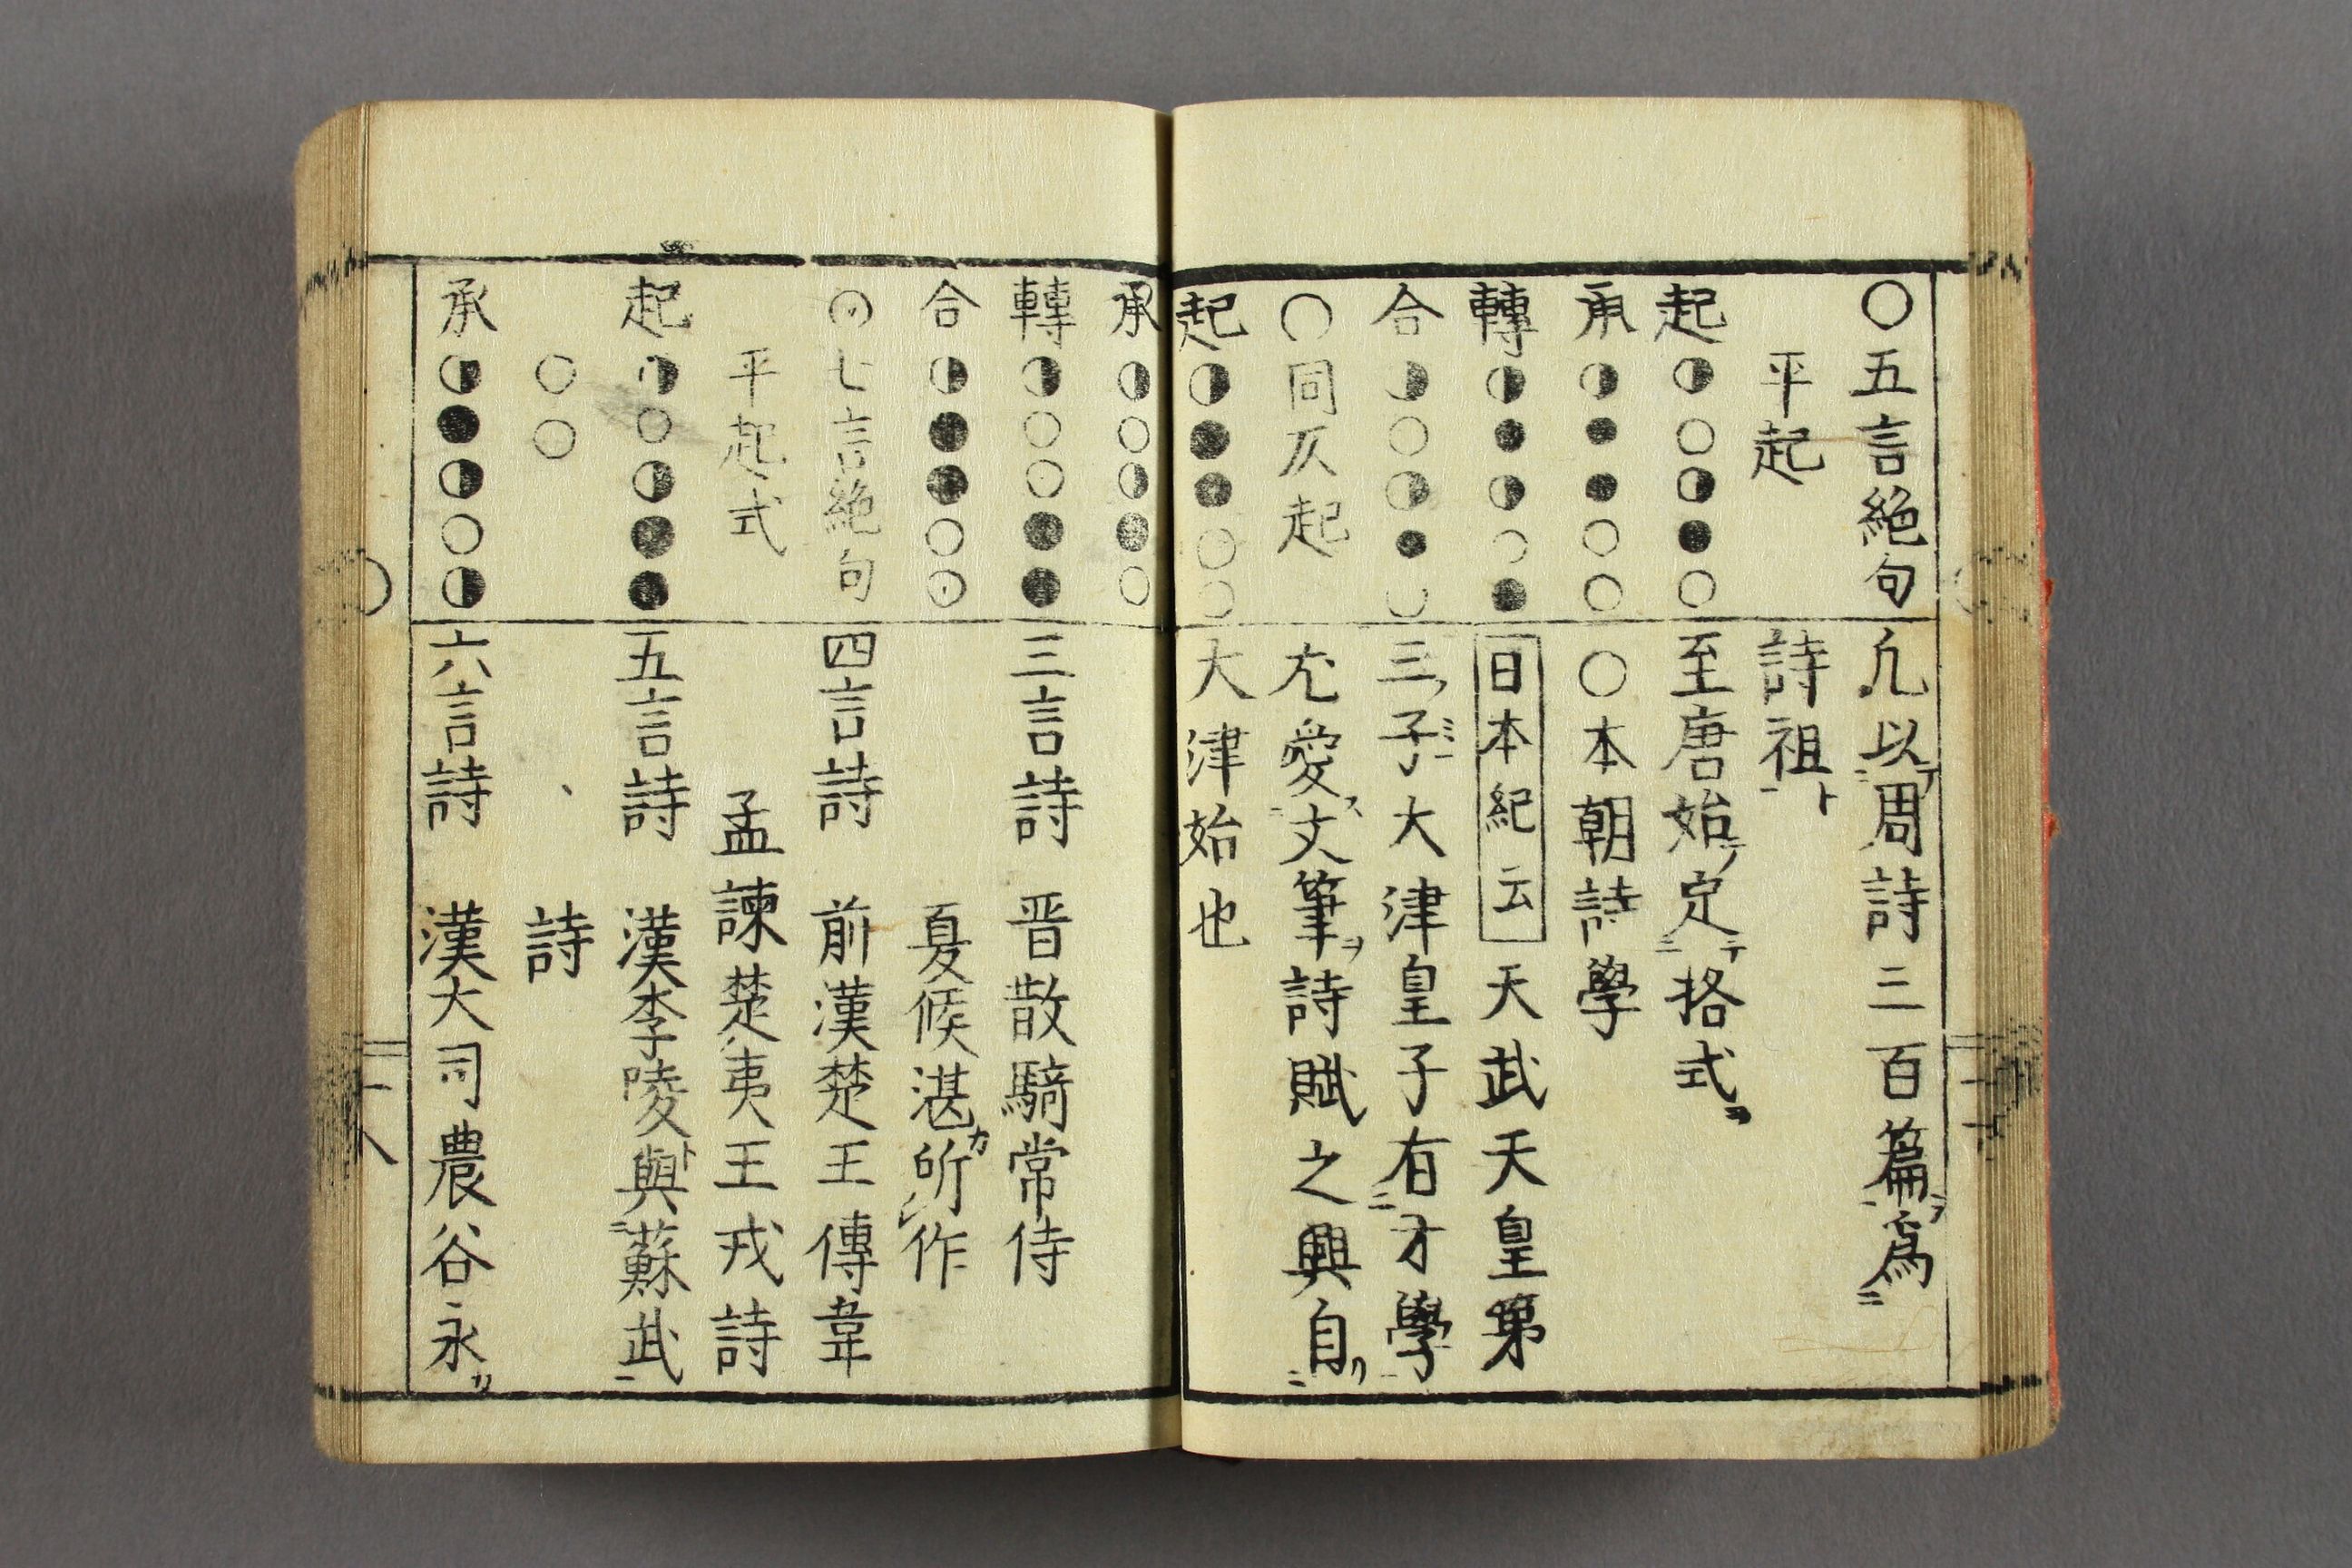 〇五言絶句
平起
起◑〇◑●〇
承◑●●〇〇
轉◑●◑〇●
合◑〇◑●〇
〇同仄起
起◑●●〇〇
凢以テ周詩三百篇ヲ爲
詩祖ト
至唐始テ定テ格式ヲ
〇本朝詩學
日本紀云天武天皇第
三ノ子ミニ大津皇子有才學
尤愛ス文筆ヲ詩賦之興自リ
大津始也
承◑〇◑●〇
轉◑〇〇●●
合◑●●〇〇
〇七言絶句
平起式
起◑〇◑●●
〇〇
承◑●◑〇◑
三言詩 晋散騎常侍
夏候湛カ所ノ作
四言詩 前漢楚王傳韋
孟諫楚夷王戎詩
五言詩 漢李陵與ト蘇武
詩
六言詩 漢大司農谷永カ